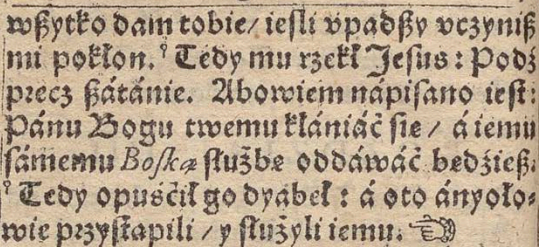 wßytko dam tobie/ ieſli vpadßy vczyniß
mi pokłon. ⁹ Tedy mu rzekł Jeſus: Podź
precz ßátánie. Abowiem nápiſano ieſt:
Pánu Bogu twemu kłániáć ſie/ á iemu
ſámemu Boſką ſłużbę oddáwáć będźieß.
⁹ Tedy opuśćił go dyabeł: á oto ányoło-
wie przyſtąpili/ y ſłużyli iemu. ☜